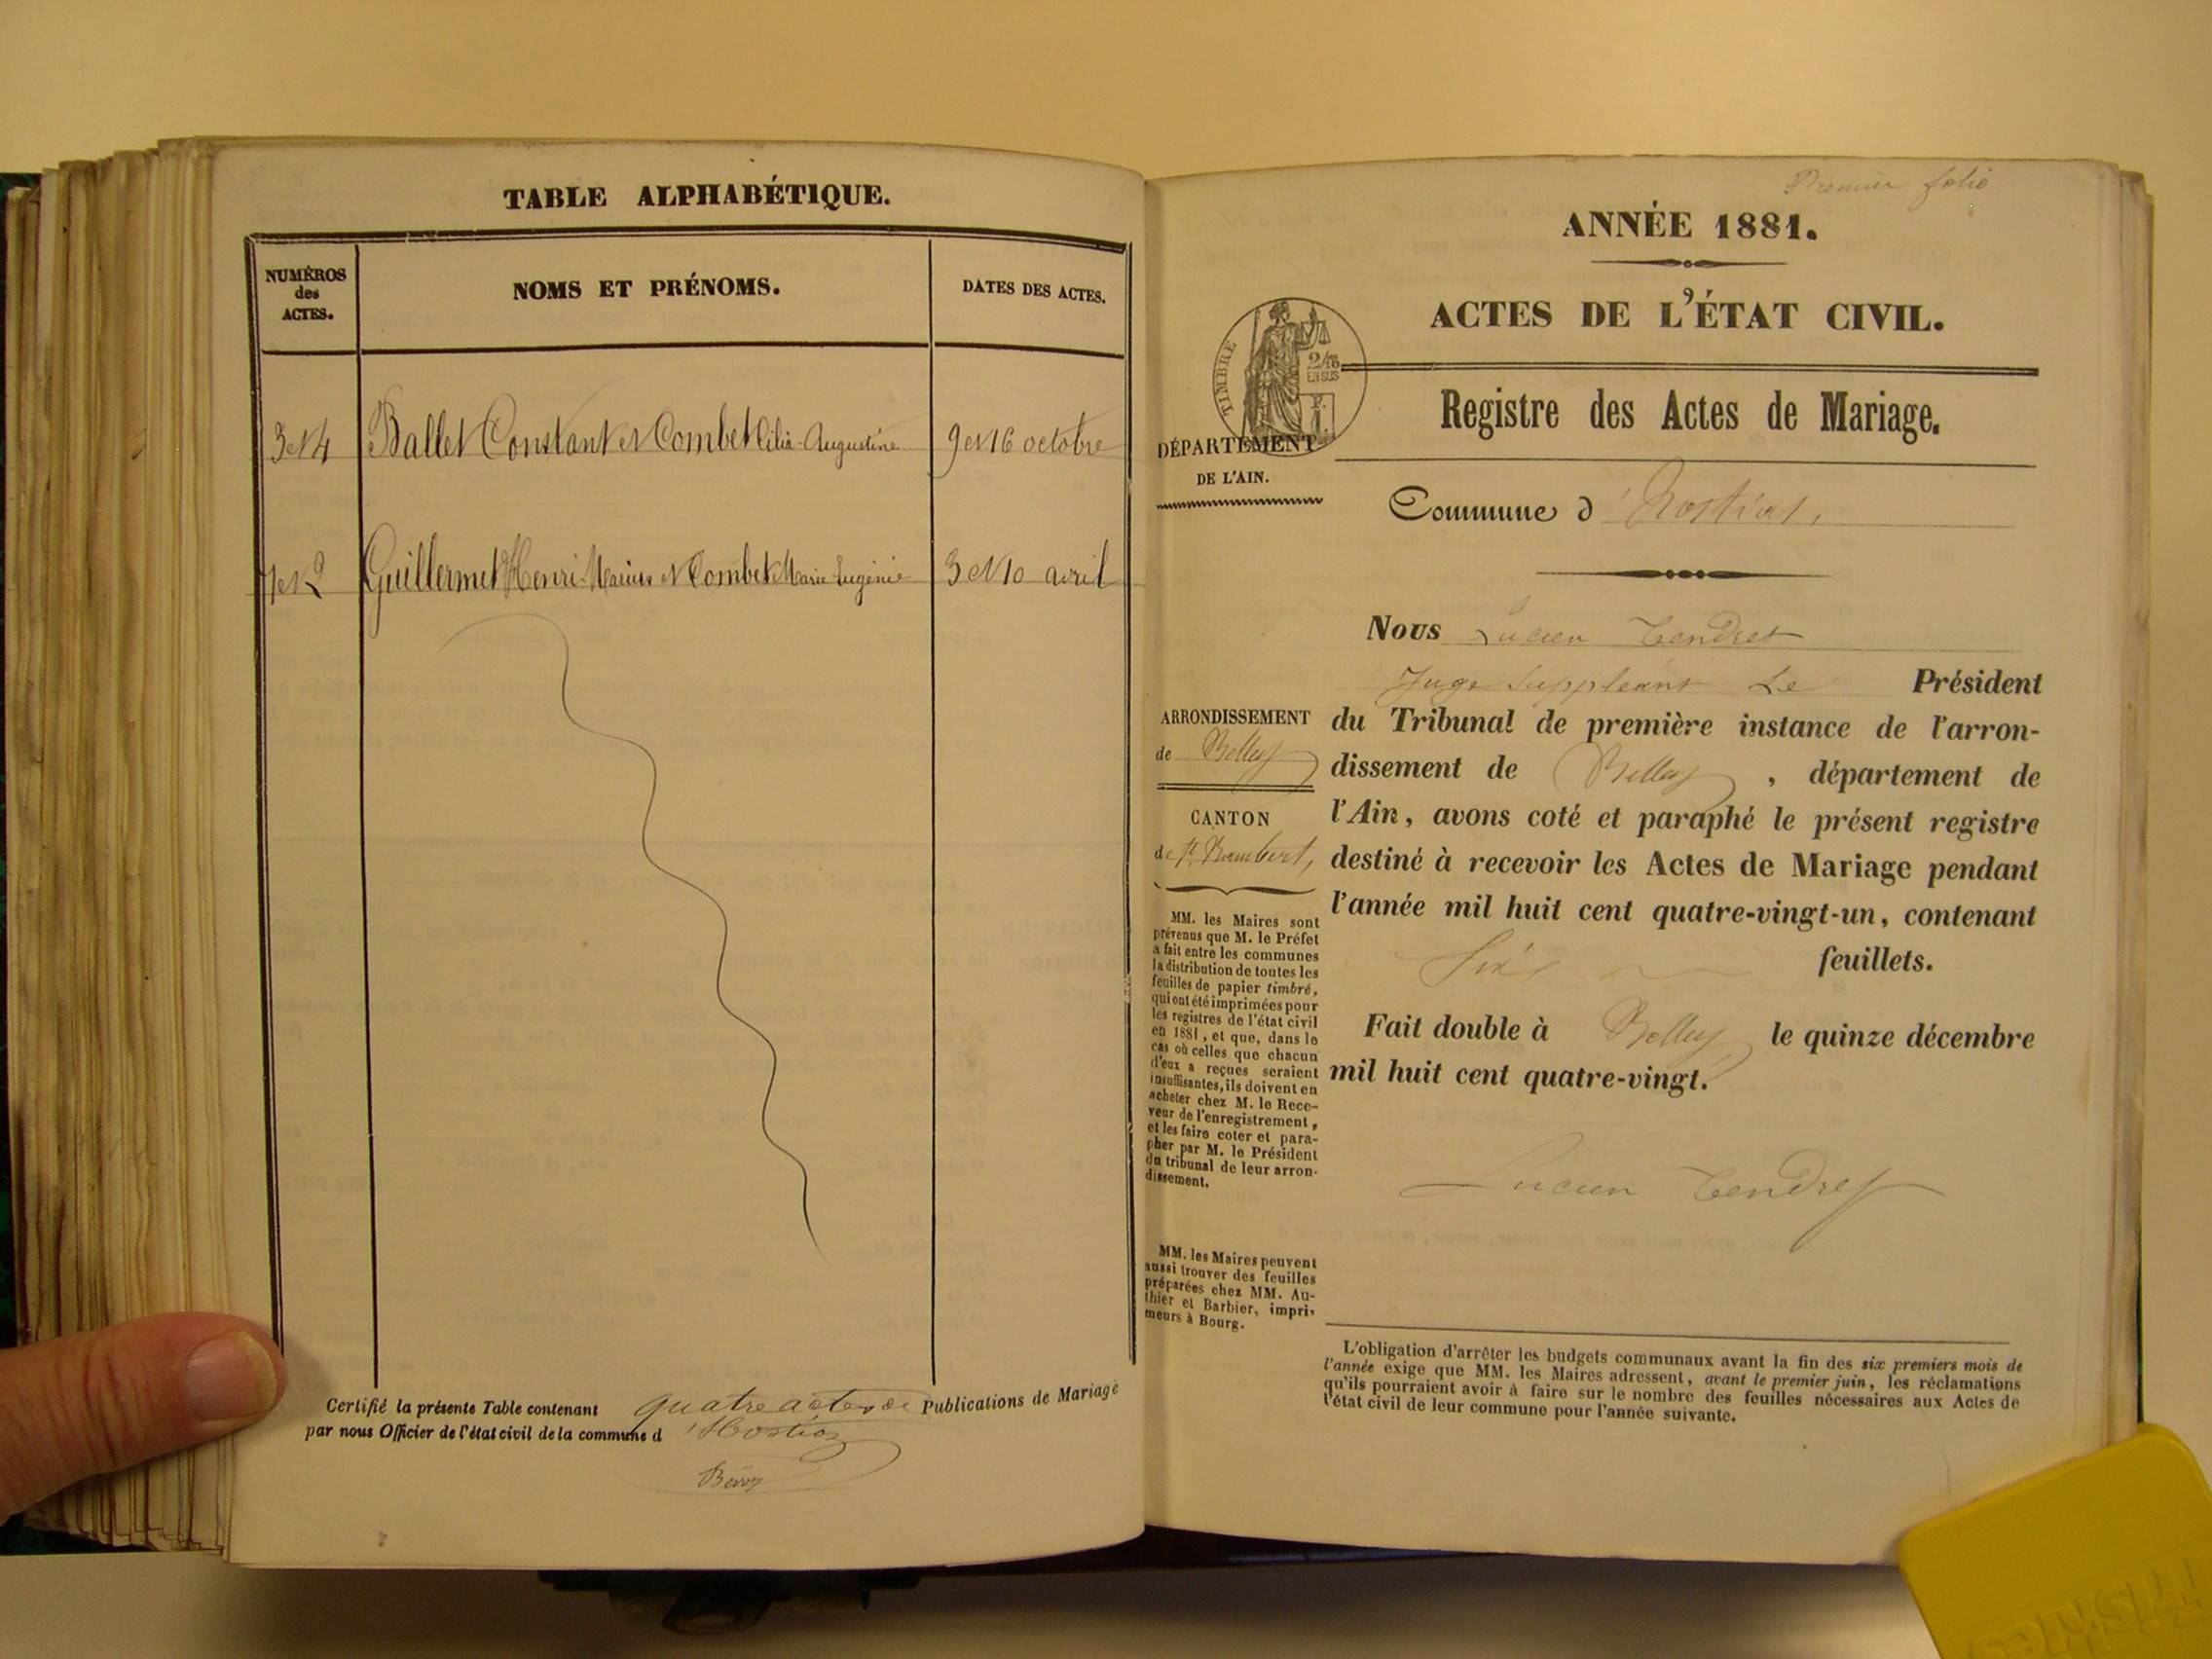 TABLE ALPHABÉTIQUE.
NUMÉROS
des
ACTES.
NOMS ET PRÉNOMS.
DATES DES ACTES.
3 et 4 Ballet Constant et Combet Célia-Augustine 9 et 16 octobre
1 et 2 Guillermet Henri-Marius et Combet Marie-Eugénie 3 et 10 avril
Certifié la présente Table contenant quatre actes de Publications de Mariage
par nous Officier de l'état civil de la commune d 'Hostiaz
Premier folio
ANNÉE 1881.
ACTES DE L'ÉTAT CIVIL.
TIMBRE
2/10
EN SUS
Registre des Actes de Mariage.
DÉPARTEMENT
DE L'AIN.
Commune d 'Hostiaz,
Nous Lucien Tendret
Juge Suppléant Le Président
du Tribunal de première instance de l'arron-
dissement de Belley, département de
l'Ain, avons coté et paraphé le présent registre
destiné à recevoir les Actes de Mariage pendant
l'année mil huit cent quatre-vingt-un, contenant
Six feuillets.
Fait double à Belley le quinze décembre
mil huit cent quatre-vingt.
Lucien Tendret
ARRONDISSEMENT
de Belley
CANTON
de St Rambert,
MM. les Maires sont
prévenus que M. le Préfet
a fait entre les communes
la distribution de toutes les
feuilles de papier timbré,
qui ont été imprimées pour
les registres de l'état civil
en 1881, et que, dans le
cas où celles que chacun
d'eux a reçues seraient
insuffisantes, ils doivent en
acheter chez M. le Rece-
veur de l'enregistrement,
et les faire coter et para-
pher par M. le Président
du tribunal de leur arron-
dissement.
MM. les Maires peuvent
aussi trouver des feuilles
préparées chez MM. Au-
thier et Barbier, impri-
meurs à Bourg.
L'obligation d'arrêter les budgets communaux avant la fin des six premiers mois de
l'année exige que MM. les Maires adressent, avant le premier juin, les réclamations
qu'ils pourraient avoir à faire sur le nombre des feuilles nécessaires aux Actes de
l'état civil de leur commune pour l'année suivante.